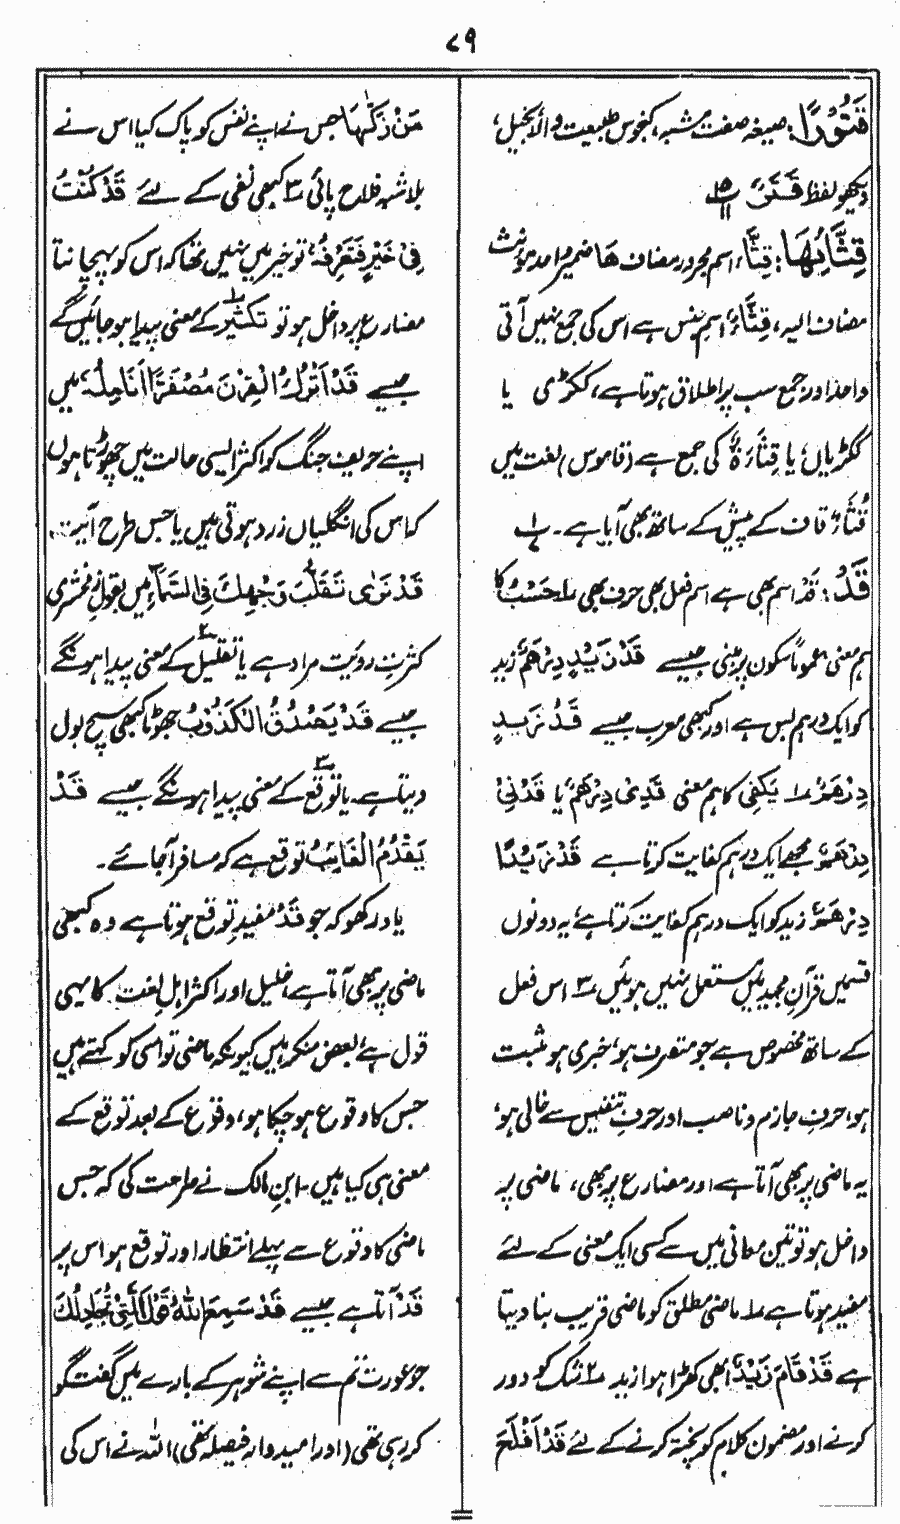 ۷۹
قَتُوْرًا: صیغہ صفت مشبہ، کنجوس طبیعت والا بخیل،
دیکھو لفظ قَتَرَ ۱۵
قِثَّآئِهَا: قِثَّآء، اسم مجرور مضاف ھا ضمیر واحد مونث
مضاف الیہ، قِثَّاءٌ اسم جنس ہے اس کی جمع نہیں آتی
واحد اور جمع سب پر اطلاق ہوتا ہے، ککڑی یا
ککڑیاں، یا قِثَّاءَةٌ کی جمع ہے (قاموس) لغت میں
قُثَّاءٌ قاف کے پیش کے ساتھ بھی آیا ہے۔ ۱
قَدْ: قَدْ اسم بھی ہے اسم فعل بھی حرف بھی ۱ حَسْبُ کا
ہم معنی عموماً سکون پر مبنی جیسے قَدْ زَيْدٍ دِرْهَمٌ زید
کو ایک درہم بس ہے اور کبھی معرب جیسے قَدُ زَيْدٍ
دِرْهَمٌ ۱ یَکْفِی کا ہم معنی قَدِی دِرْهَمٌ یا قَدْنِیْ
دِرْهَمٌ مجھے ایک درہم کفایت کرتا ہے قَدْ زَيْدًا
دِرْهَمٌ زید کو ایک درہم کفایت کرتا ہے، یہ دونوں
قسمیں قرآن مجید میں مستعمل نہیں ہوئیں ۳ اس فعل
کے ساتھ مخصوص ہے جو متصرف ہو، خبری ہو مثبت
ہو، حرفِ جازم و ناصب اور حرفِ تنفیس سے خالی ہو،
یہ ماضی پر بھی آتا ہے اور مضارع پر بھی، ماضی پر
داخل ہو تو تین معانی میں سے کسی ایک معنی کے لئے
مفید ہوتا ہے ۱ ماضی مطلق کو ماضی قریب بنا دیتا
ہے قَدْ قَامَ زَيْدٌ ابھی کھڑا ہوا زید ۲ شک کو دور
کرنے اور مضمون کلام کو پختہ کرنے کے لئے قَدْ اَفْلَحَ
مَنْ زَكّٰهَا جس نے اپنے نفس کو پاک کیا اس نے
بلاشبہ فلاح پائی ۳ کبھی نفی کے لئے قَدْ كُنْتُ
فِیْ خَيْرٍ فَتَعْرِفَهُ، تو خیر میں نہیں تھا کہ اس کو پہچانتا
مضارع پر داخل ہو تو ۱ تکثیر کے معنی پیدا ہو جائیں گے
جیسے قَدْ اَتْرُكُ الْقِرْنَ مُصْفَرًّا اَنَامِلُهٗ، میں
اپنے حریف جنگ کو اکثر ایسی حالت میں چھوڑتا ہوں
کہ اس کی انگلیاں زرد ہوتی ہیں یا جس طرح آیت
قَدْ نَرٰى تَقَلُّبَ وَجْهِكَ فِی السَّمَآءِ میں بقول زمخشری
کثرتِ رویت مراد ہے یا ۲ تقلیل کے معنی پیدا ہونگے
جیسے قَدْ يَصْدُقُ الْكَذُوْبُ جھوٹا کبھی سچ بول
دیتا ہے۔ یا ۳ توقع کے معنی پیدا ہونگے جیسے قَدْ
يَقْدُمُ الْغَائِبُ توقع ہے کہ مسافر آجائے۔
یاد رکھو کہ جو قَدْ مفیدِ توقع ہوتا ہے وہ کبھی
ماضی پر بھی آتا ہے، خلیل اور اکثر اہل لغت کا یہی
قول ہے، بعض منکر ہیں کیونکہ ماضی تو اسی کو کہتے ہیں
جس کا وقوع ہو چکا ہو، وقوع کے بعد توقع کے
معنی ہی کیا ہیں۔ ابن مالک نے صراحت کی کہ جس
ماضی کا وقوع سے پہلے انتظار اور توقع ہو اس پر
قَدْ آتا ہے جیسے قَدْ سَمِعَ اللّٰهُ قَوْلَ الَّتِیْ تُجَادِلُكَ
جو عورت تم سے اپنے شوہر کے بارے میں گفتگو
کر رہی تھی (اور امیدوارِ فیصلہ تھی) اللہ نے اس کی